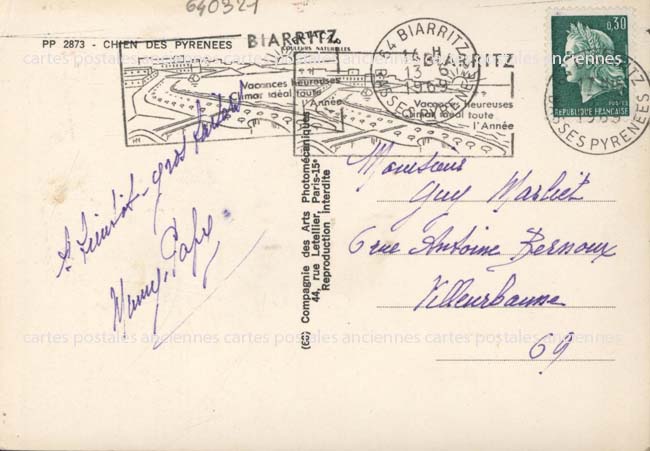 640321
PP 2873 - CHIEN DES PYRENEES
BIARRITZ
COULEURS NATURELLES
Vacances heureuses
Climat idéal toute
l'Année
64 BIARRITZ
14 H
13-6
1969
BASSES PYRENEES
BIARRITZ
Vacances heureuses
Climat idéal toute
l'Année
0,30
POSTES
REPUBLIQUE FRANÇAISE
BASSES PYRENEES
à bientôt - gros
Mamy - Papy
(60) Compagnie des Arts Photomécaniques
44, rue Letellier, Paris-15e
Reproduction interdite
Monsieur
Guy
6 rue Antoine Bernoux
Villeurbanne
69
cartes postales anciennes
cartes postales anciennes